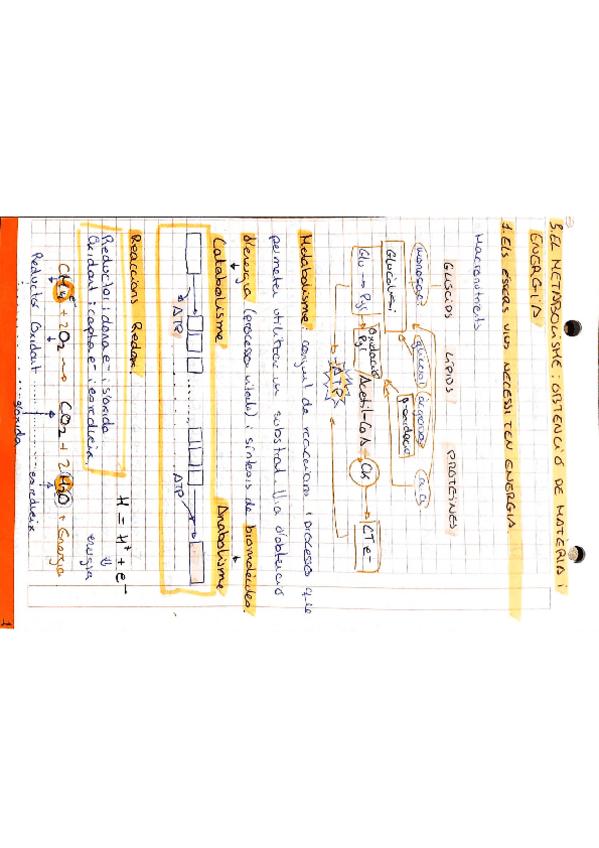 3. EL METABOLISME: OBTENCIÓ DE MATÈRIA I
ENERGIA
1. ELS ÉSSERS VIUS NECESSITEN ENERGIA.
Macronutrients
GLÚCIDS LÍPIDS PROTEÏNES
monosac. glicerol àc. grassos a.a
Glucòlisi β-oxidació
Oxidació
Glu → Pyr Pyr Acetil-CoA CK CTe-
ATP
Metabolisme: conjunt de reaccions i processos que
permeten utilitzar un substrat. Via d'obtenció
d'energia (processos vitals) i síntesis de biomolècules.
Catabolisme Anabolisme
ATP ATP
Reaccions Redox
Reductor: dona e- i s'oxida H = H+ + e-
Oxidant: capta e- i es redueix energia
CH4 + 2O2 → CO2 + 2H2O + Energia
e-
Reductor Oxidant es redueix
s'oxida
1